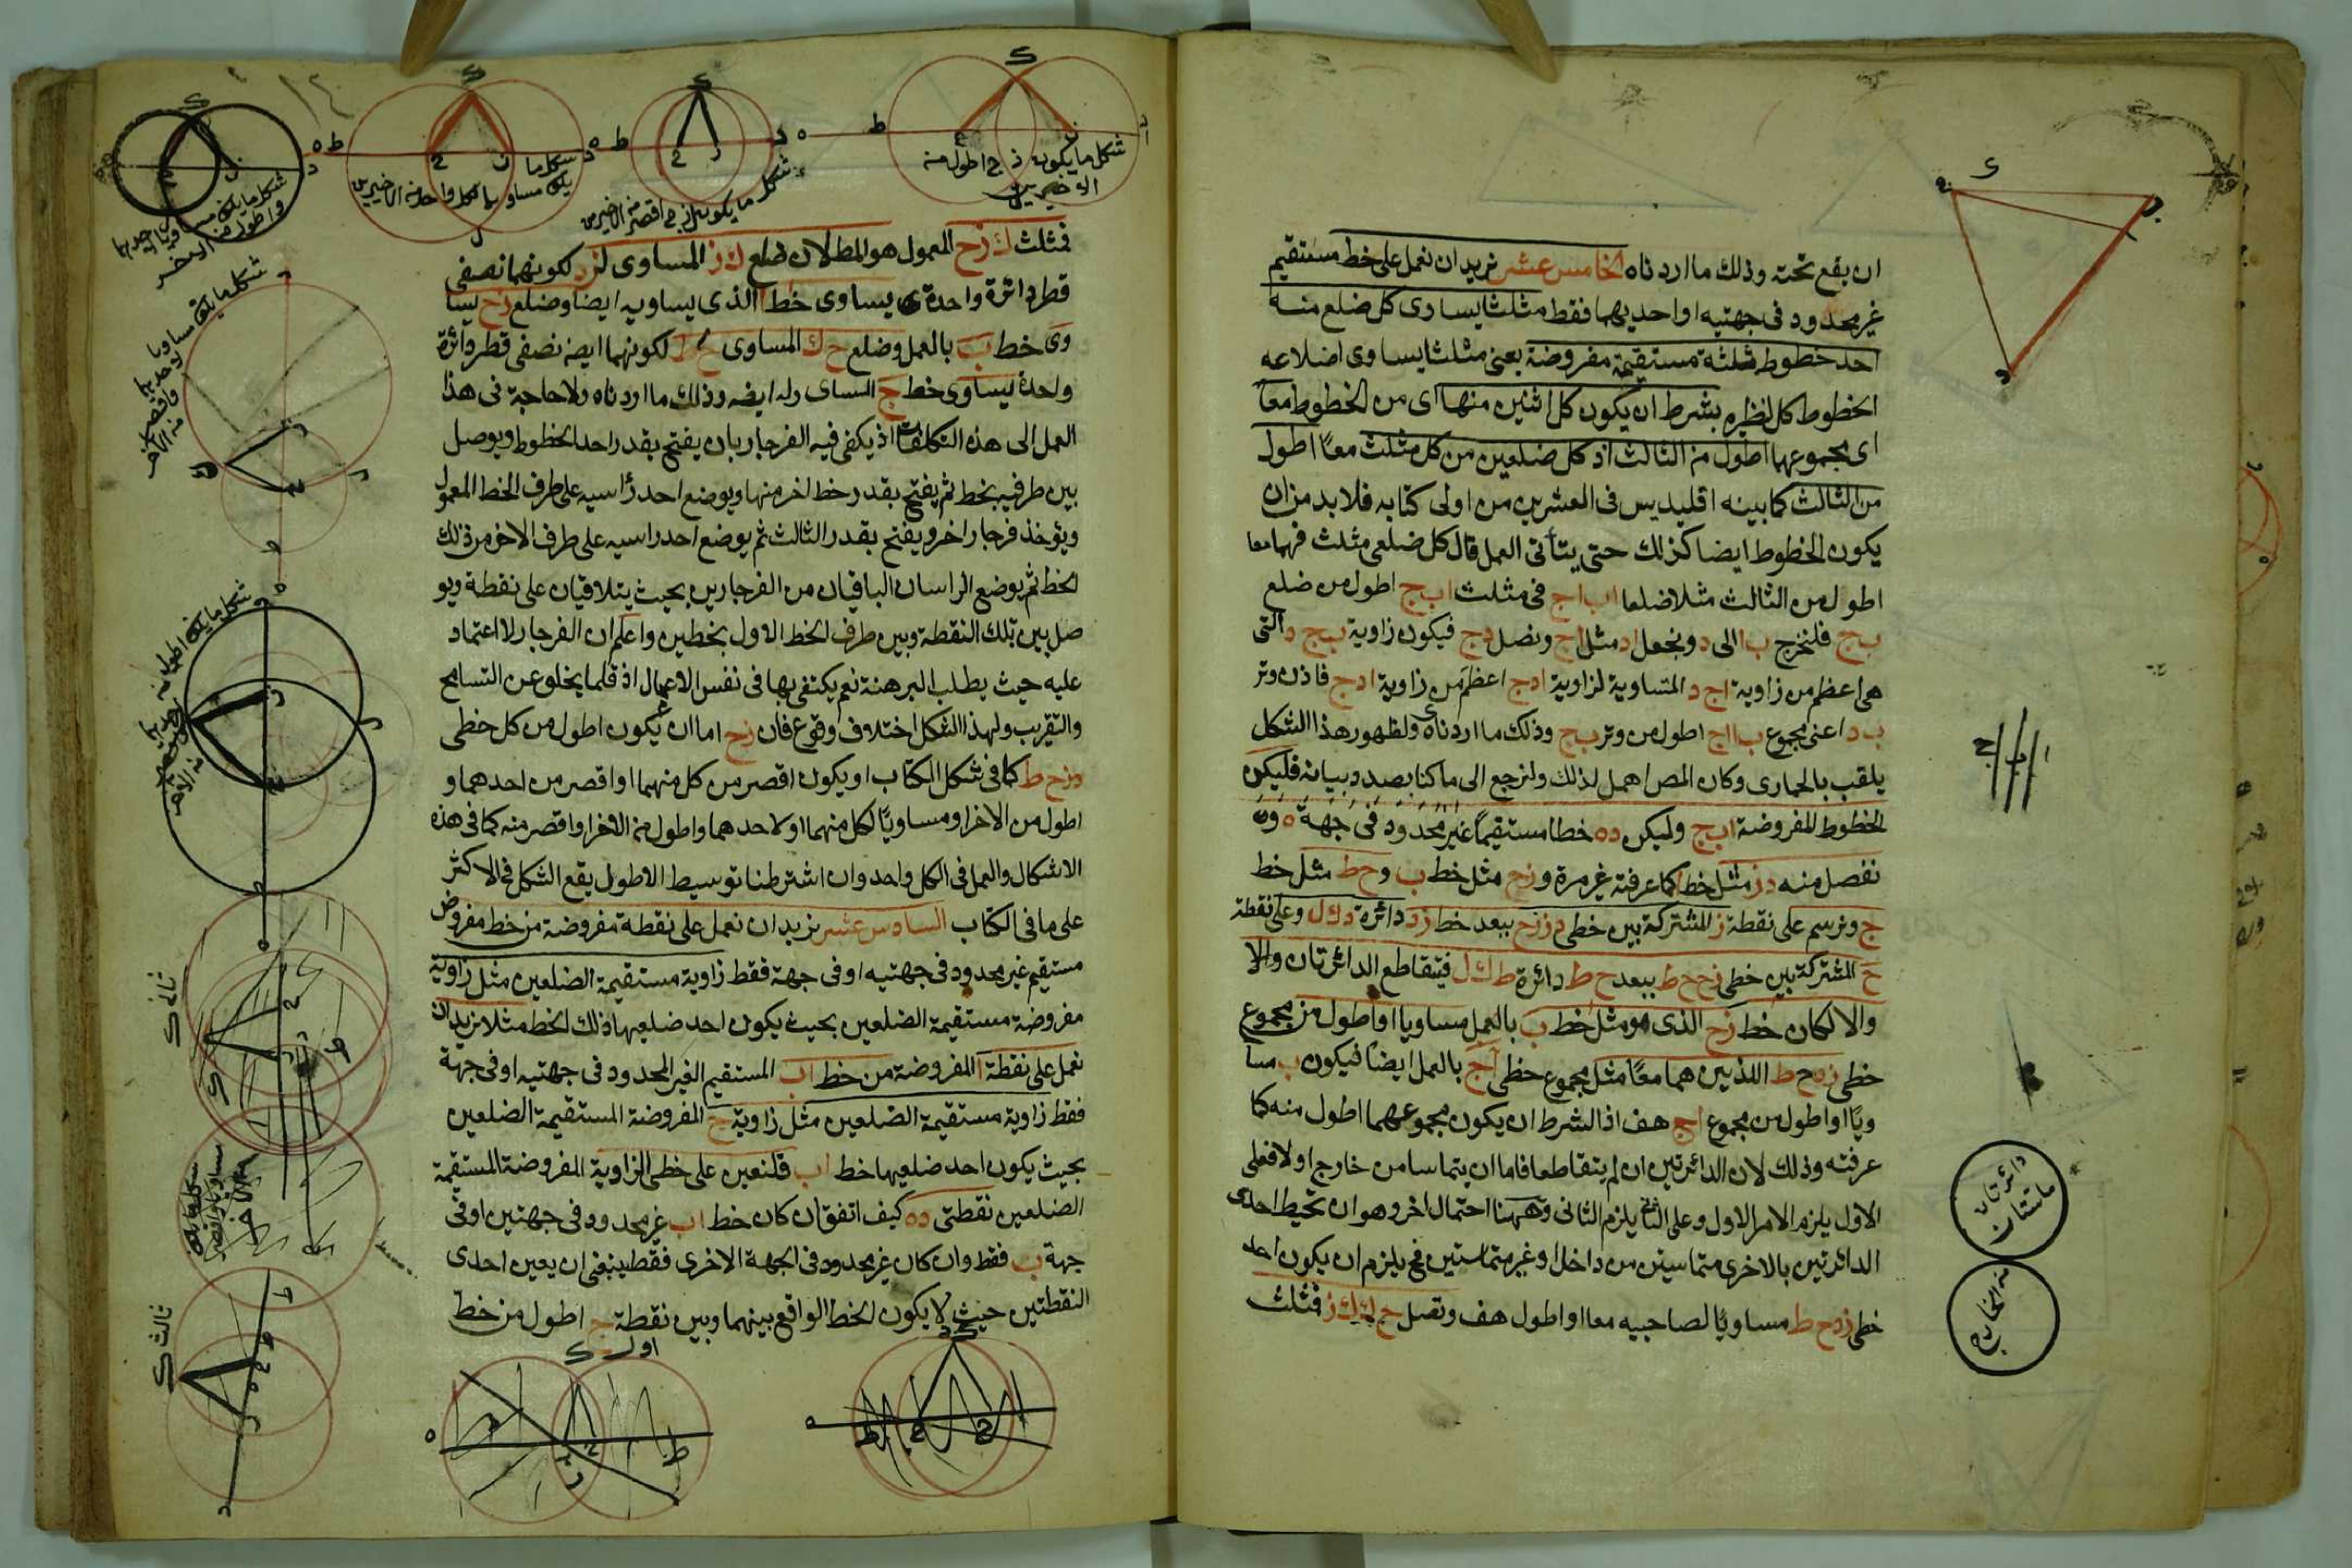 ان يقع تحته وذلك ما اردناه الخامس عشر نريد ان نعمل على خط مستقيم
غير محدود فى جهتيه او احديهما فقط مثلثا يساوى كل ضلع منه
احد خطوط ثلثة مستقيمة مفروضة يعنى مثلثا يساوى اضلاعه
الخطوط كل لنظيره بشرط ان يكون كل اثنين منها اى من الخطوط معا
اى مجموعهما اطول من الثالث اذ كل ضلعين من كل مثلث معًا اطول
من الثالث كما بينه اقليديس فى العشرين من اولى كتابه فلا بد من ان
يكون الخطوط ايضا كذلك حتى يتأتى العمل قال كل ضلعى مثلث فهما معا
اطول من الثالث مثلا ضلعا اب اج فى مثلث ا ب ج اطول من ضلع
ب ج فلنخرج ب ا الى د ونجعل اد مثل اج ونصل د ج فيكون زاوية ب ج د التى
هى اعظم من زاوية ا ج د المتساوية لزاوية ا د ج اعظم من زاوية ا د ج فاذن وتر
ب د اعنى مجموع ب ا ا ج اطول من وتر ب ج وذلك ما اردناه ولظهور هذا الشكل
يلقب بالحمارى وكان المص اهمل لذلك ولنرجع الى ما كنا بصدد بيانه فليكن
الخطوط المفروضة ا ب ج وليكن د ه خطا مستقيمًا غير محدود فى جهة ه
نفصل منه د ز مثل خط ا كما عرفته غير مرة و ز ح مثل خط ب و ح ط مثل خط
ج ونرسم على نقطة ز المشتركة بين خطى د ز ز ح ببعد خط ز د دائرة د ك ل وعلى نقطة
ح المشتركة بين خطى ز ح ح ط ببعد ح ط دائرة ط ك ل فيتقاطع الدائرتان والا
والا لكان خط ز ح الذى هو مثل خط ب بالعمل مساويا او اطول من مجموع
خطى ز د ح ط اللذين هما معًا مثل مجموع خطى ا ج بالعمل ايضًا فيكون ب مسا
ويًا او اطول من مجموع ا ج هف اذ الشرط ان يكون مجموعهما اطول منه كما
عرفته وذلك لان الدائرتين ان لم يتقاطعا فاما ان يتماسا من خارج او لا فعلى
الاول يلزم الامر الاول وعلى الثانى يلزم الثانى وههنا احتمال اخر وهو ان تحيط احدى
الدائرتين بالاخرى متماستين من داخل او غير متماستين فح يلزم ان يكون احد
خطى ز د ح ط مساويًا لصاحبيه معا او اطول هف ونصل ح ك ك ز فمثلث
دائرتان
متماستان
من الخارج
شكل ما يكون ز ح اطول منه
الاخيرين
شكل ما يكون ز ح اقصر من الاخيرين
شكل ما
يكون مساويا لكل واحد من الاخيرين
فمثلث ك ز ح المعمول هو المط لان ضلع ك ز المساوى لز د لكونهما نصفى
قطر دائرة واحدة يساوى خط ا الذى يساويه ايضا وضلع ز ح يسا
وى خط ب بالعمل وضلع ح ك المساوى ح ط لكونهما ايضه نصفى قطر دائرة
واحدة يساوى خط ج المساوى له ايضه وذلك ما اردناه ولا حاجة فى هذا
العمل الى هذه التكلفات اذ يكفى فيه الفرجار بان يفتح بقدر احد الخطوط ويوصل
بين طرفيه بخط ثم يفتح بقدر خط اخر منها ويوضع احد رأسيه على طرف الخط المعمول
ويؤخذ فرجار اخر ويفتح بقدر الثالث ثم يوضع احد راسيه على طرف الاخر من ذلك
الخط ثم يوضع الراسان الباقيان من الفرجارين بحيث يتلاقيان على نقطة ويو
صل بين تلك النقطة وبين طرفى الخط الاول بخطين واعلم ان الفرجار لا اعتماد
عليه حيث يطلب البرهنة نعم يكتفى بها فى نفس الاعمال اذ قلما يخلو عن التسامح
والتقريب ولهذا الشكل اختلاف وقوع فان ز ح اما ان يكون اطول من كل خطى
د ز ح ط كما فى شكل الكتاب او يكون اقصر من كل منهما او اقصر من احدهما و
اطول من الاخر او مساويًا لكل منهما او لاحدهما واطول من الاخر او اقصر منه كما فى هذه
الاشكال والعمل فى الكل واحد وان اشترطنا توسيط الاطول يقع الشكل فى الاكثر
على ما فى الكتاب السادس عشر نريد ان نعمل على نقطة مفروضة من خط مفروض
مستقيم غير محدود فى جهتيه او فى جهة فقط زاوية مستقيمة الضلعين مثل زاوية
مفروضة مستقيمة الضلعين بحيث يكون احد ضلعيها ذلك الخط مثلا نريد ان
نعمل على نقطة ا المفروضة من خط ا ب المستقيم الغير المحدود فى جهتيه او فى جهة
فقط زاوية مستقيمة الضلعين مثل زاوية ج المفروضة المستقيمة الضلعين
بحيث يكون احد ضلعيها خط ا ب فلنعين على خطى الزاوية المفروضة المستقيمة
الضلعين نقطتى د ه كيف اتفق ان كان خط ا ب غير محدود فى جهتين او فى
جهة ب فقط وان كان غير محدود فى الجهة الاخرى فقط ينبغى ان يعين احدى
النقطتين حيث لا يكون الخط الواقع بينهما وبين نقطة ج اطول من خط
اول
ثانى
ثالث